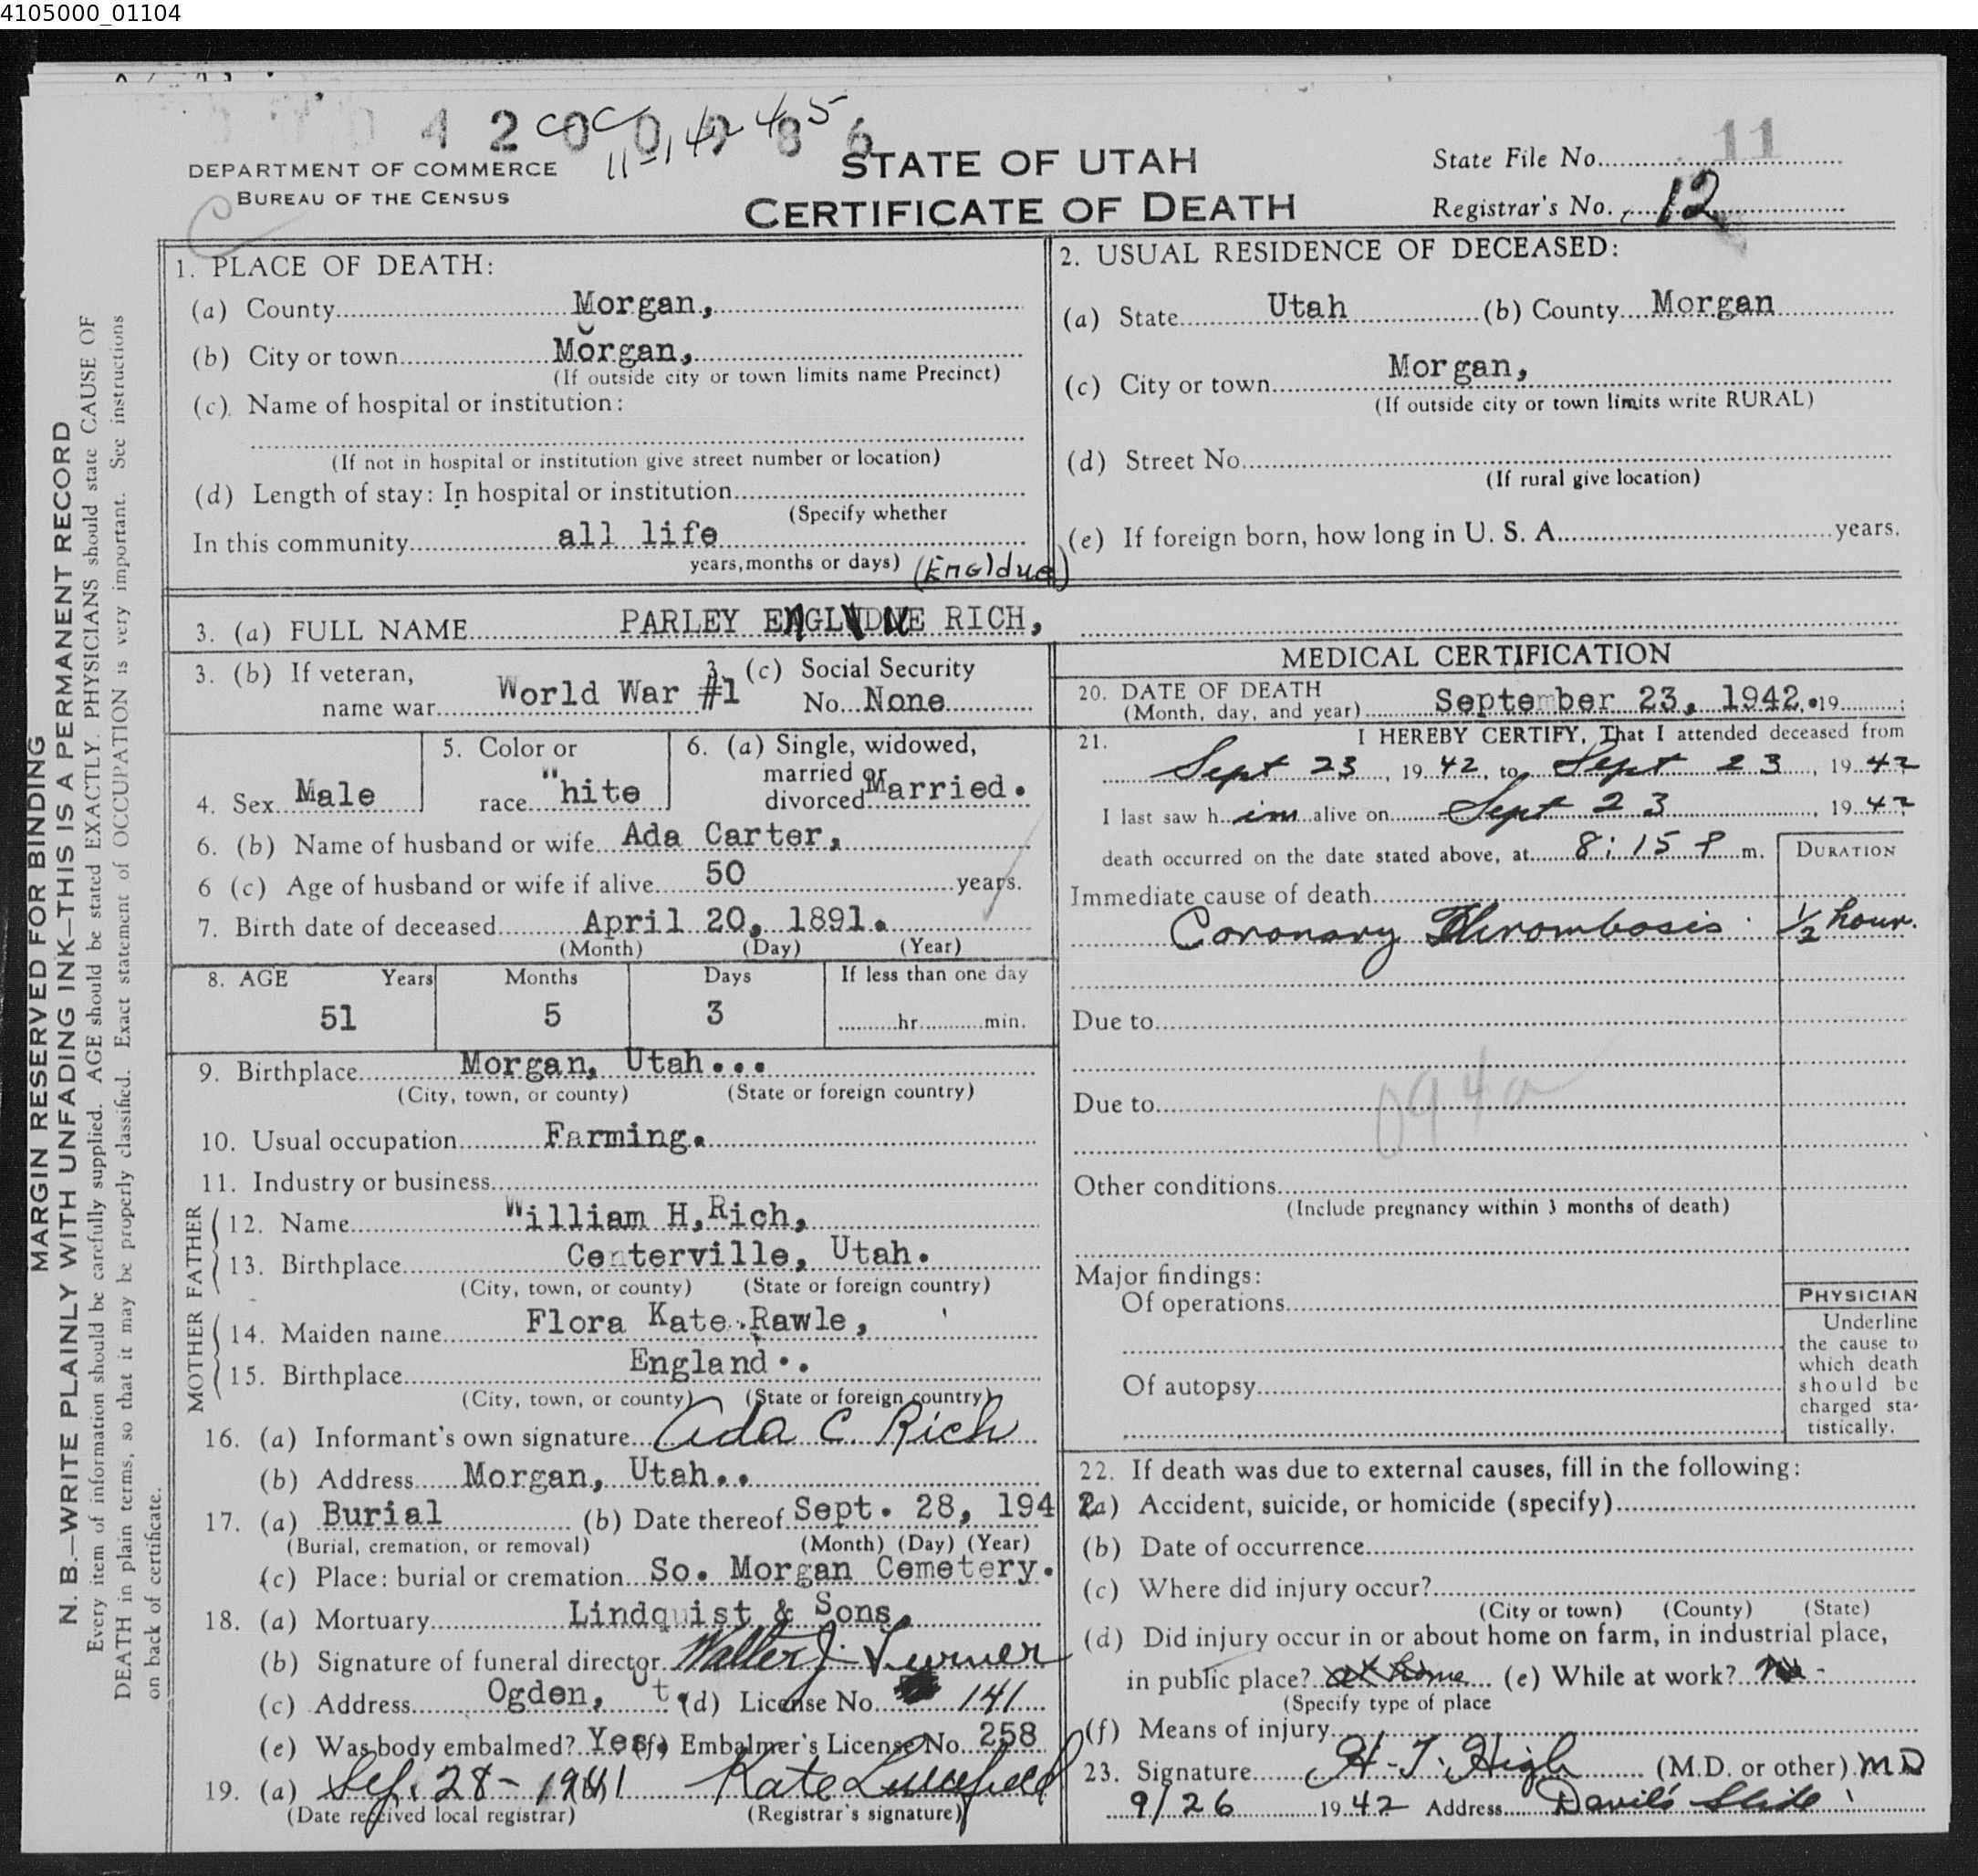 4105000_01104
DEPARTMENT OF COMMERCE
BUREAU OF THE CENSUS
STATE OF UTAH
CERTIFICATE OF DEATH
State File No. 11
Registrar's No. 12
MARGIN RESERVED FOR BINDING
N. B.—WRITE PLAINLY WITH UNFADING INK—THIS IS A PERMANENT RECORD
Every item of information should be carefully supplied. AGE should be stated EXACTLY. PHYSICIANS should state CAUSE OF
DEATH in plain terms, so that it may be properly classified. Exact statement of OCCUPATION is very important. See instructions
on back of certificate.
1. PLACE OF DEATH:
(a) County Morgan,
(b) City or town Morgan,
(If outside city or town limits name Precinct)
(c) Name of hospital or institution:
(If not in hospital or institution give street number or location)
(d) Length of stay: In hospital or institution
(Specify whether
In this community all life
years, months or days) (Engldue)
2. USUAL RESIDENCE OF DECEASED:
(a) State Utah (b) County Morgan
(c) City or town Morgan,
(If outside city or town limits write RURAL)
(d) Street No.
(If rural give location)
(e) If foreign born, how long in U. S. A. years.
3. (a) FULL NAME PARLEY RICH,
3. (b) If veteran, name war World War #1
3 (c) Social Security No. None
4. Sex Male
5. Color or race White
6. (a) Single, widowed, married or divorced Married.
6. (b) Name of husband or wife Ada Carter,
6 (c) Age of husband or wife if alive 50 years.
7. Birth date of deceased April 20, 1891.
(Month) (Day) (Year)
8. AGE Years Months Days If less than one day
51 5 3 hr. min.
9. Birthplace Morgan, Utah...
(City, town, or county) (State or foreign country)
10. Usual occupation Farming.
11. Industry or business
FATHER
12. Name William H, Rich,
13. Birthplace Centerville, Utah.
(City, town, or county) (State or foreign country)
MOTHER
14. Maiden name Flora Kate Rawle,
15. Birthplace England..
(City, town, or county) (State or foreign country)
16. (a) Informant's own signature Ada C. Rich
(b) Address Morgan, Utah..
17. (a) Burial (b) Date thereof Sept. 28, 1942
(Burial, cremation, or removal) (Month) (Day) (Year)
(c) Place: burial or cremation So. Morgan Cemetery.
18. (a) Mortuary Lindquist & Sons,
(b) Signature of funeral director Walter J.
(c) Address Ogden, Ut. (d) License No. 141
(e) Was body embalmed? Yes. (f) Embalmer's License No. 258
19. (a) Sep. 28- Kate
(Date received local registrar) (Registrar's signature)
MEDICAL CERTIFICATION
20. DATE OF DEATH
(Month, day, and year) September 23, 1942. 19 ;
21. I HEREBY CERTIFY, That I attended deceased from
Sept 23, 19 42, to Sept 23, 19 42
I last saw h im alive on Sept 23, 19 42
death occurred on the date stated above, at 8:15 P m.
DURATION
Immediate cause of death
Coronary Thrombosis 1/2 hour.
Due to
Due to
094a
Other conditions
(Include pregnancy within 3 months of death)
Major findings:
Of operations
Of autopsy
PHYSICIAN
Underline
the cause to
which death
should be
charged sta-
tistically.
22. If death was due to external causes, fill in the following:
(a) Accident, suicide, or homicide (specify)
(b) Date of occurrence
(c) Where did injury occur?
(City or town) (County) (State)
(d) Did injury occur in or about home on farm, in industrial place,
in public place? at home (e) While at work? no
(Specify type of place
(f) Means of injury
23. Signature H. T. High (M.D. or other) MD
9/26 19 42 Address Davil's Slide